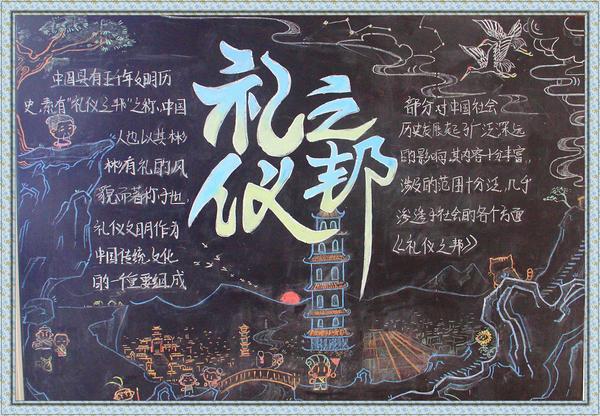 礼仪之邦
中国具有五千年文明历
史,素有"礼仪之邦"之称,中国
人也以其彬
彬有礼的风
貌而著称于世,
礼仪文明作为
中国传统文化
的一个重要组成
部分,对中国社会
历史发展起了广泛深远
的影响,其内容十分丰富,
涉及的范围十分泛,几乎
渗透于社会的各个方面
《礼仪之邦》